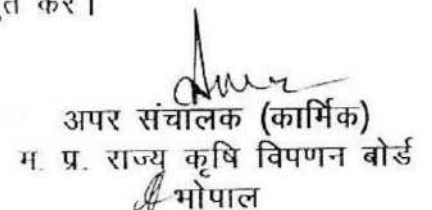 करें।
अपर संचालक (कार्मिक)
म. प्र. राज्य कृषि विपणन बोर्ड
भोपाल